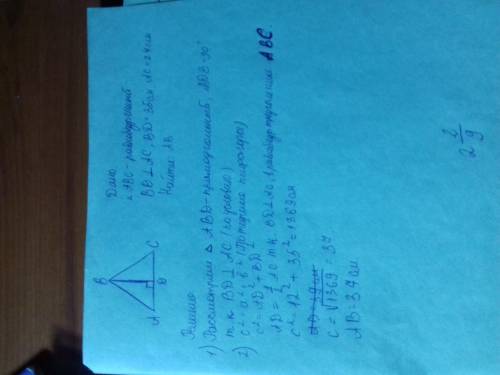 Дано:
△ABC - равнобедренный
BD⊥AC, BD=35см AC=24см
Найти: AB
B
A
D
C
Решение
1) Рассмотрим △ ABD - прямоугольный, ∠ADB=90°
т.к BD⊥AC (по условию)
2) c²=a²+b² (по теореме пифагора)
c²=AD²+BD²
AD=1/2 AC т.к. BD⊥AC, в равнобедренном ABC.
c²=12²+35²=1369см
c=√1369=37
AB=37см